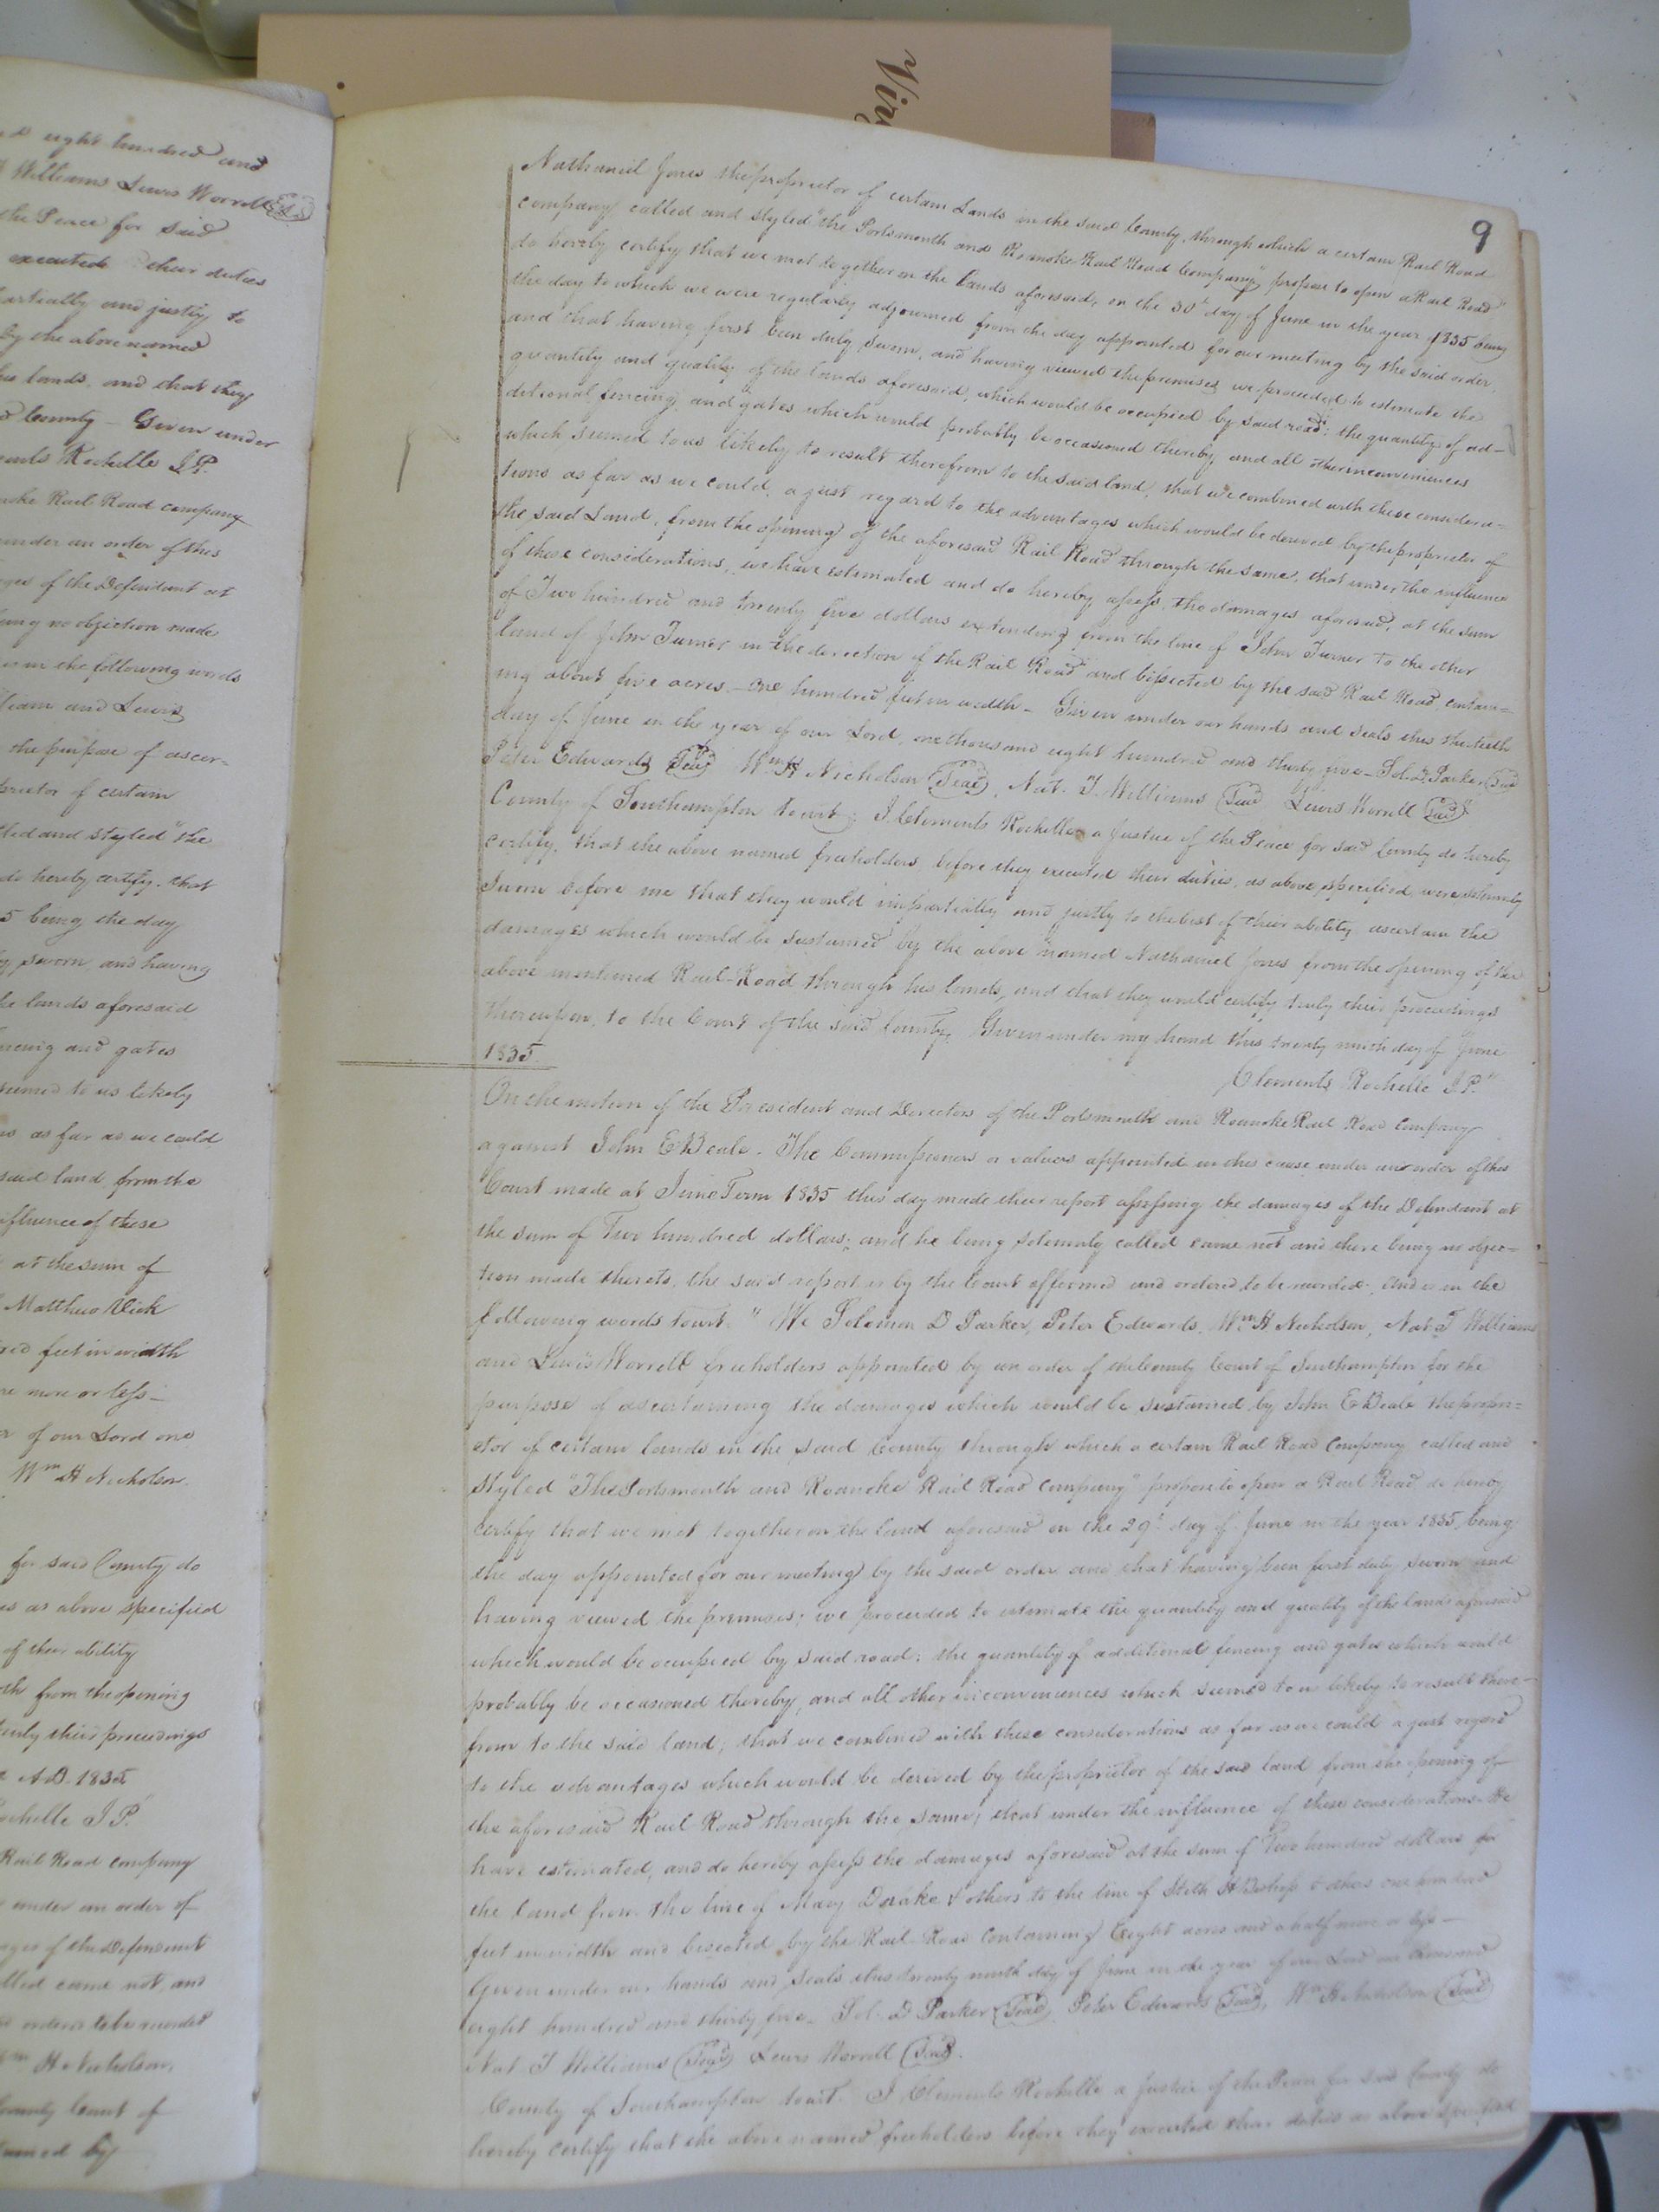 Vir
d eight hundred and
Williams Lewis Worrell
the Peace for said
executed their duties
artially and justly to
by the above named
his lands, and that they
d County - Given under
ments Rochelle J.P.
noke Rail Road company
under an order of this
ges of the Defendant at
being no objection made
is in the following words
liam and Lewis
the purpose of ascer-
prietor of certain
lled and styled "the
do hereby certify, that
5 being the day
sworn, and having
he lands aforesaid
encing and gates
seemed to us likely
ns as far as we could,
said land from the
influence of these
at the sum of
Matthew Vick
red feet in width
re more or less -
r of our Lord one
Wm H Nicholson.
for said County do
es as above specified
of their ability
th from the opening
truly their proceedings
A.D. 1835
ochelle J.P.
Rail Road company
under an order of
ages of the Defendant
lled came not, and
d ordered to be recorded
Wm H Nicholson,
County Court of
tained by
9
Nathaniel Jones the proprietor of certain Lands in the said County, through which a certain Rail Road
company called and styled "the Portsmouth and Roanoke Rail Road Company" propose to open a Rail Road
do hereby certify that we met together on the Lands aforesaid, on the 30th day of June in the year 1835 being
the day to which we were regularly adjourned from the day appointed for our meeting by the said order,
and that having first been duly sworn, and having viewed the premises we proceeded to estimate the
quantity and quality of the lands aforesaid, which would be occupied by said road; the quantity of ad-
ditional fencing and gates which would probably be occasioned thereby, and all other inconveniences
which seemed to us likely to result therefrom to the said land; that we combined with these considera=
tions as far as we could, a just regard to the advantages which would be derived by the proprietor of
the said Land, from the opening of the aforesaid Rail Road through the same, that under the influence
of these considerations, we have estimated and do hereby assess, the damages aforesaid, at the sum
of Two hundred and twenty five dollars extending from the line of John Turner to the other
land of John Turner in the direction of the Rail Road and bissected by the said Rail Road contain=
ing about five acres - one hundred feet in width - Given under our hands and seals this
day of June in the year of our Lord, one thousand eight hundred and thirty five - Sol. D. Parker Seal
Peter Edwards Seal Wm H Nicholson Seal, Nat. T. Williams Seal Lewis Worrell Seal
County of Southampton towit; I Clements Rochelle a Justice of the Peace for said County do hereby
certify, that the above named freeholders before they executed their duties, as above specified were solemnly
sworn before me that they would impartially and justly to the best of their ability ascertain the
damages which would be sustained by the above named Nathaniel Jones from the opening of the
above mentioned Rail-Road through his lands, and that they would certify truly their proceedings
thereupon, to the Court of the said County. Given under my hand this twenty ninth day of June
1835
Clements Rochelle J.P."
On the motion of the President and Directors of the Portsmouth and Roanoke Rail Road Company
against John E Beale. The Commissioners or valuers appointed in this cause under an order of this
Court made at June Term 1835 this day made their report assessing the damages of the Defendant at
the sum of Two hundred dollars; and he being solemnly called came not and there being no objec=
tion made thereto, the said report is by the Court affirmed and ordered to be recorded. and is in the
following words towit. "We Solomon D Parker, Peter Edwards, Wm H Nicholson, Nat T Williams
and Lewis Worrell freeholders appointed by an order of the County Court of Southampton for the
purpose of ascertaining the damages which would be sustained by John E Beale the propri=
etor of certain lands in the said County through which a certain Rail Road Company called and
styled "The Portsmouth and Roanoke Rail Road Company" propose to open a Rail Road, do hereby
certify that we met together on the land aforesaid on the 29th day of June in the year 1835, being
the day appointed for our meeting by the said order and that having been first duly sworn and
having viewed the premises; we proceeded to estimate the quantity and quality of the lands aforesaid
which would be occupied by said road; the quantity of additional fencing and gates which would
probably be occasioned thereby, and all other inconveniences which seemed to us likely to result there-
from to the said land; that we combined with these considerations as far as we could a just regard
to the advantages which would be derived by the proprietor of the said land from the opening of
the aforesaid Rail Road through the same; that under the influence of these considerations We
have estimated, and do hereby assess the damages aforesaid at the sum of Two hundred dollars for
the land from the line of Mary Drake & others to the line of Bishop & others one hundred
feet in width and bisected by the Rail-Road containing eight acres and a half more or less -
Given under our hands and seals this twenty ninth day of June in the year of our Lord one thousand
eight hundred and thirty five - Sol. D Parker Seal, Peter Edwards Seal, Wm H Nicholson Seal
Nat T Williams Seal Lewis Worrell Seal.
County of Southampton towit. I Clements Rochelle a Justice of the Peace for said County do
hereby certify that the above named freeholders before they executed their duties as above specified